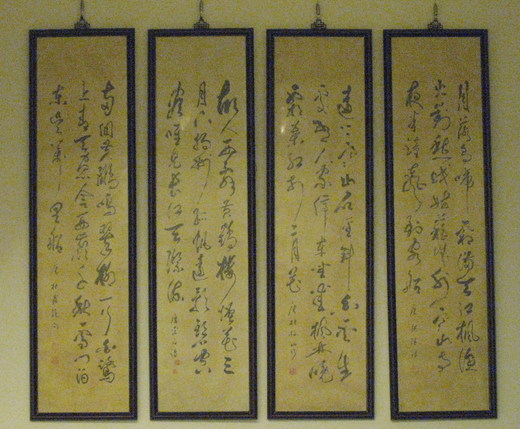 月落烏啼霜滿天江楓漁
火對愁眠姑蘇城外寒山寺
夜半鐘聲到客船
遠上寒山石徑斜白雲生
處有人家停車坐愛楓林晚
霜葉紅於二月花
故人西辭黃鶴樓煙花三
月下揚州孤帆遠影碧空
盡唯見長江天際流
兩個黃鸝鳴翠柳一行白鷺
上青天窗含西嶺千秋雪門泊
東吳萬里船